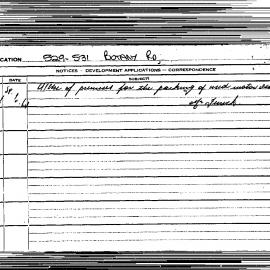 CATION 529-531 BOTANY RD,
NOTICES - DEVELOPMENT APPLICATIONS - CORRESPONDENCE
DATE SUBJECT
Use of premises for the parking of used motor
of